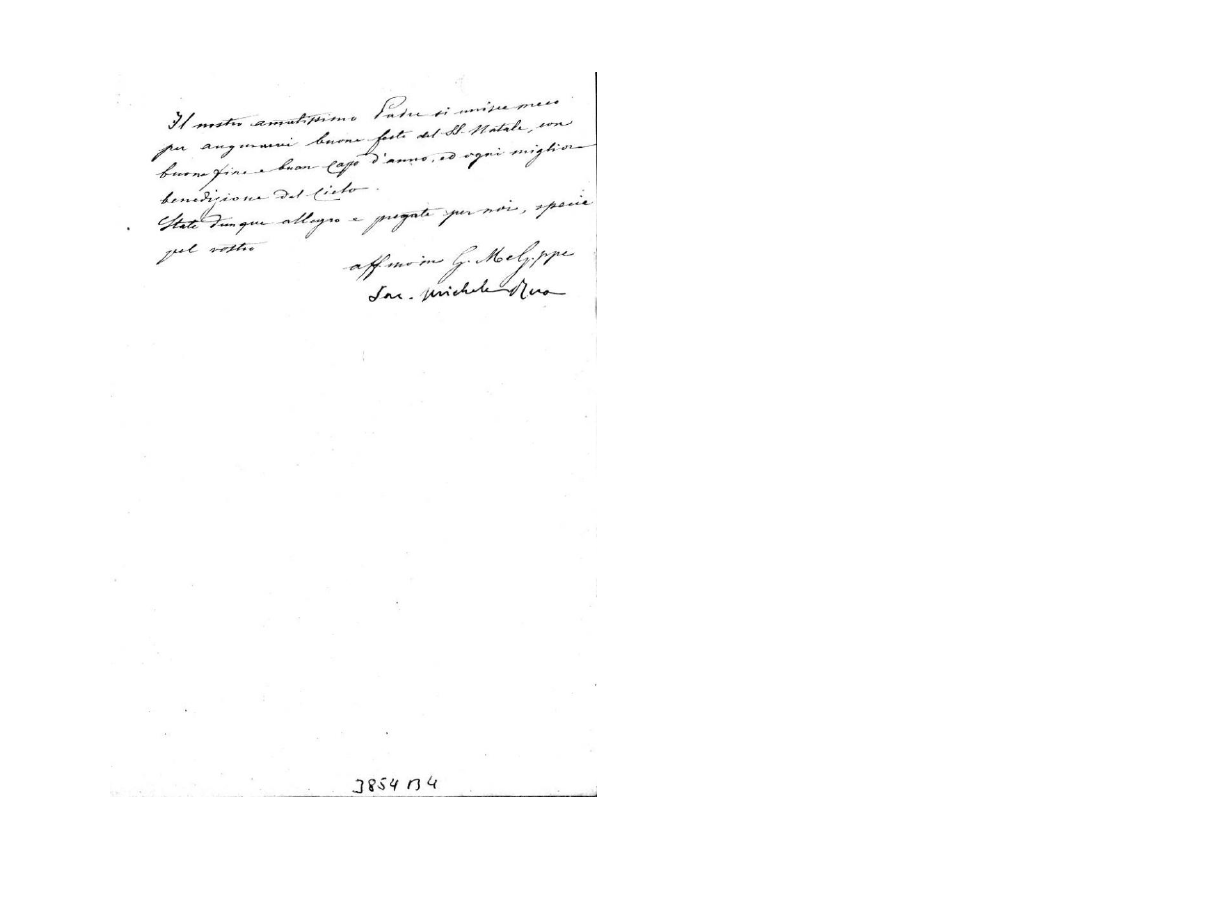 Il nostro amatissimo Padre si unisce meco
per augurarvi buone feste del SS. Natale, con
buona fine e buon capo d'anno, ed ogni miglior
benedizione del Cielo.
State dunque allegro e pregate per noi, specie
pel vostro
affmo in G. M e G.ppe
Sac. Michele Rua
3854 B 4